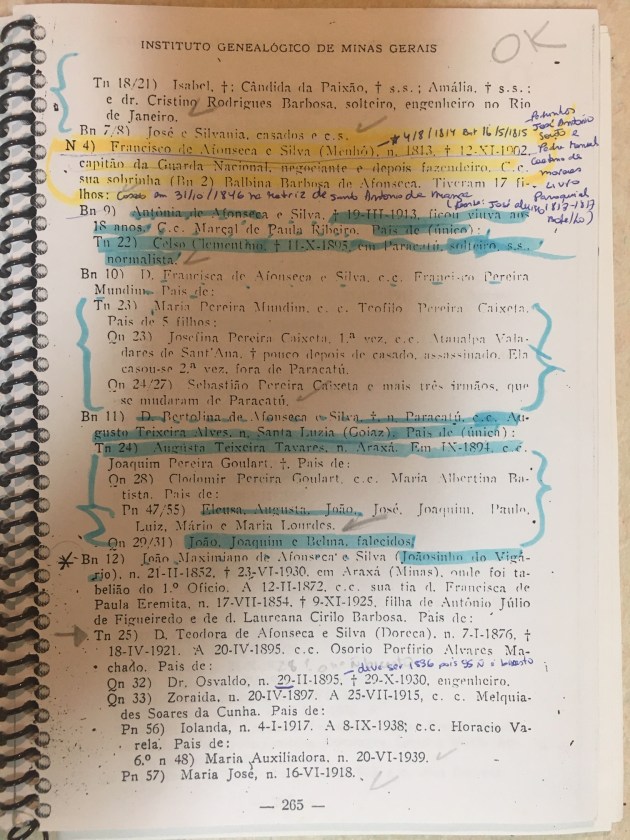 OK
INSTITUTO GENEALÓGICO DE MINAS GERAIS
Tn 18/21) Isabel, †; Cândida da Paixão, † s.s.; Amália, † s.s.;
e dr. Cristino Rodrigues Barbosa, solteiro, engenheiro no Rio
de Janeiro.
Bn 7/8) José e Silvania, casados e c.s. * 4/8/1814 Bat 16/5/1815
Padrinhos
José Antonio
Pedro Manoel
Caetano de
moraes
Livro
Paroquial
1817-1817
N 4) Francisco de Afonseca e Silva (Menhô), n. 1813, † 12-XI-1902,
capitão da Guarda Nacional, negociante e depois fazendeiro. C.c.
sua sobrinha (Bn 2) Balbina Barbosa de Afonseca. Tiveram 17 fi-
lhos: Casou em 31/10/1846 na matriz de Santo Antonio da
Bn 9) Antônia de Afonseca e Silva, † 19-III-1913, ficou viuva aos
18 anos. C.c. Marçal de Paula Ribeiro. Pais de (único):
Tn 22) Celso Clementino, † 11-X-1895, em Paracatú, solteiro, s.s.,
normalista.
Bn 10) D. Francisca de Afonseca e Silva, c.c. Francisco Pereira
Mundim. Pais de:
Tn 23) Maria Pereira Mundim, c. c. Teofilo Pereira Caixeta.
Pais de 5 filhos:
Qn 23) Josefina Pereira Caixeta, 1.ª vez, c.c. Atanalpa Vala-
dares de Sant'Ana, † pouco depois de casado, assassinado. Ela
casou-se 2.ª vez, fora de Paracatú.
Qn 24/27) Sebastião Pereira Caixeta e mais três irmãos, que
se mudaram de Paracatú.
Bn 11) D. Bertolina de Afonseca e Silva, †, n. Paracatú, c.c. Au-
gusto Teixeira Alves, n. Santa Luzia (Goiaz). Pais de (única):
Tn 24) Augusta Teixeira Tavares, n. Araxá. Em IX-1894, c.c.
Joaquim Pereira Goulart, †. Pais de:
Qn 28) Clodomir Pereira Goulart, c.c. Maria Albertina Ba-
tista. Pais de:
Pn 47/55) Eleusa, Augusta, João, José, Joaquim, Paulo,
Luiz, Mário e Maria Lourdes.
Qn 29/31) João, Joaquim e Belina, falecidos.
* Bn 12) João Maximiano de Afonseca e Silva (Joãosinho do Vigá-
rio), n. 21-II-1852, † 23-VI-1930, em Araxá (Minas), onde foi ta-
belião do 1.º Ofício. A 12-II-1872, c.c. sua tia d. Francisca de
Paula Eremita, n. 17-VII-1854, † 9-XI-1925, filha de Antônio Júlio
de Figueiredo e de d. Laureana Cirilo Barbosa. Pais de:
Tn 25) D. Teodora de Afonseca e Silva (Doreca), n. 7-I-1876, †
18-IV-1921. A 20-IV-1895, c.c. Osorio Porfirio Alvares Ma-
chado. Pais de: - deve ser 1896 pois 95 ñ é bissexto
Qn 32) Dr. Osvaldo, n. 29-II-1895, † 29-X-1930, engenheiro.
Qn 33) Zoraida, n. 20-IV-1897. A 25-VII-1915, c. c. Melquia-
des Soares da Cunha. Pais de:
Pn 56) Iolanda, n. 4-I-1917. A 8-IX-1938; c.c. Horacio Va-
rela. Pais de:
6.º n 48) Maria Auxiliadora, n. 20-VI-1939.
Pn 57) Maria José, n. 16-VI-1918.
— 265 —